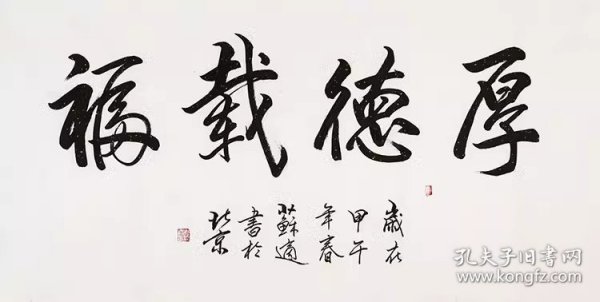 厚德载福
歲在
甲午
年春
蘇適
書於
北京
孔夫子旧书网
www.kongfz.com